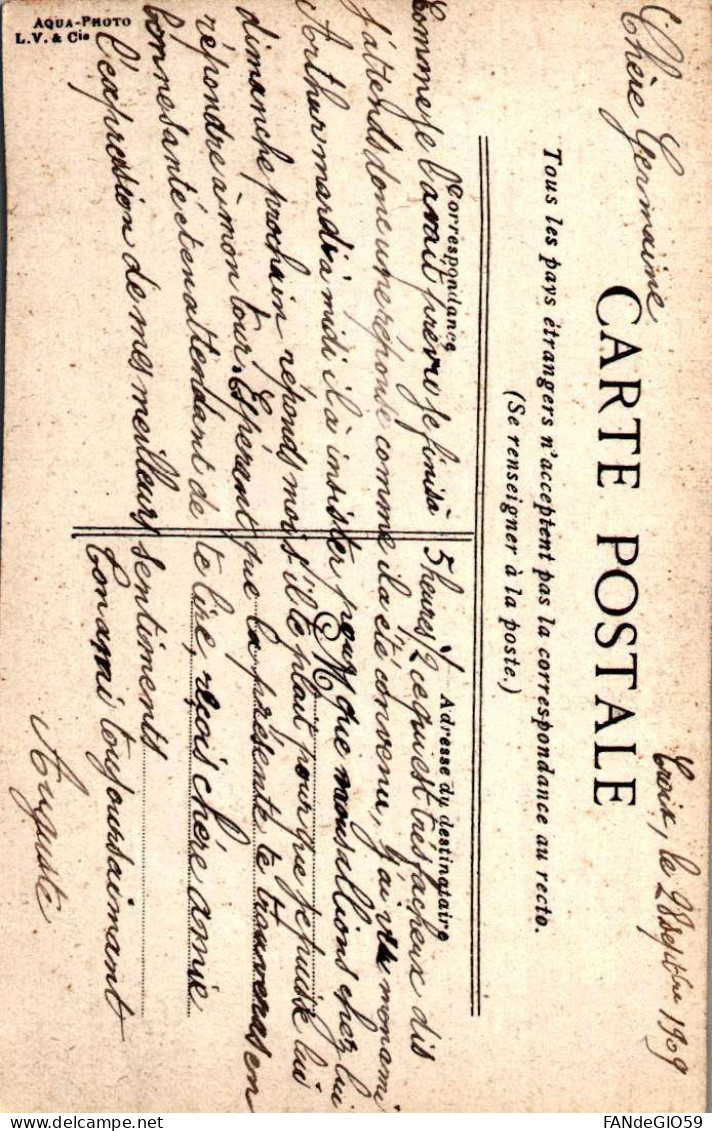 Croix, le 28 septbre 1909
Chère Germaine
CARTE POSTALE
Tous les pays étrangers n'acceptent pas la correspondance au recto.
(Se renseigner à la poste.)
Correspondance
Adresse du destinataire
Comme je l'avais prévu je finis à 5 heures 1/2 ce qui est très fâcheux dis
j'attends donc une réponse comme il a été convenu, j'ai vu mon ami
Arthur mardi à midi il a insister pour que nous allions chez lui
dimanche prochain réponds moi s'il te plait pour que je puisse lui
répondre à mon tour. Espérant que la présente te trouveras en
bonne santé et en attendant de te lire, reçois chère amie
l'expression de mes meilleurs sentiments
Ton ami toujours aimant
Auguste
AQUA-PHOTO
L.V. & Cie
FANdeGIO59